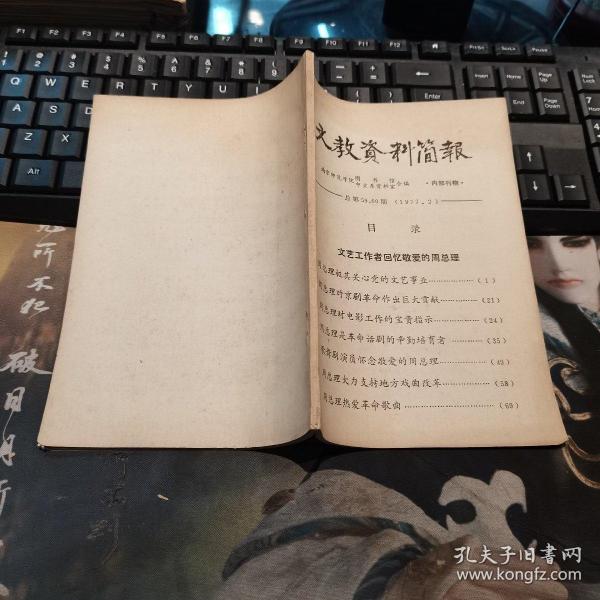 文教資料简報
南京师院学院图书馆
中文系资料室合编
·内部刊物·
总第59、60期 (1977.2)
目 录
文艺工作者回忆敬爱的周总理
周总理极其关心党的文艺事业 (1)
周总理对京剧革命作出巨大贡献 (21)
周总理对电影工作的宝贵指示 (24)
周总理是革命话剧的辛勤培育者 (35)
歌舞剧演员怀念敬爱的周总理 (43)
周总理大力支持地方戏曲改革 (58)
周总理热爱革命歌曲 (63)
所不
破日月所
孔夫子旧书网
www.kongfz.com